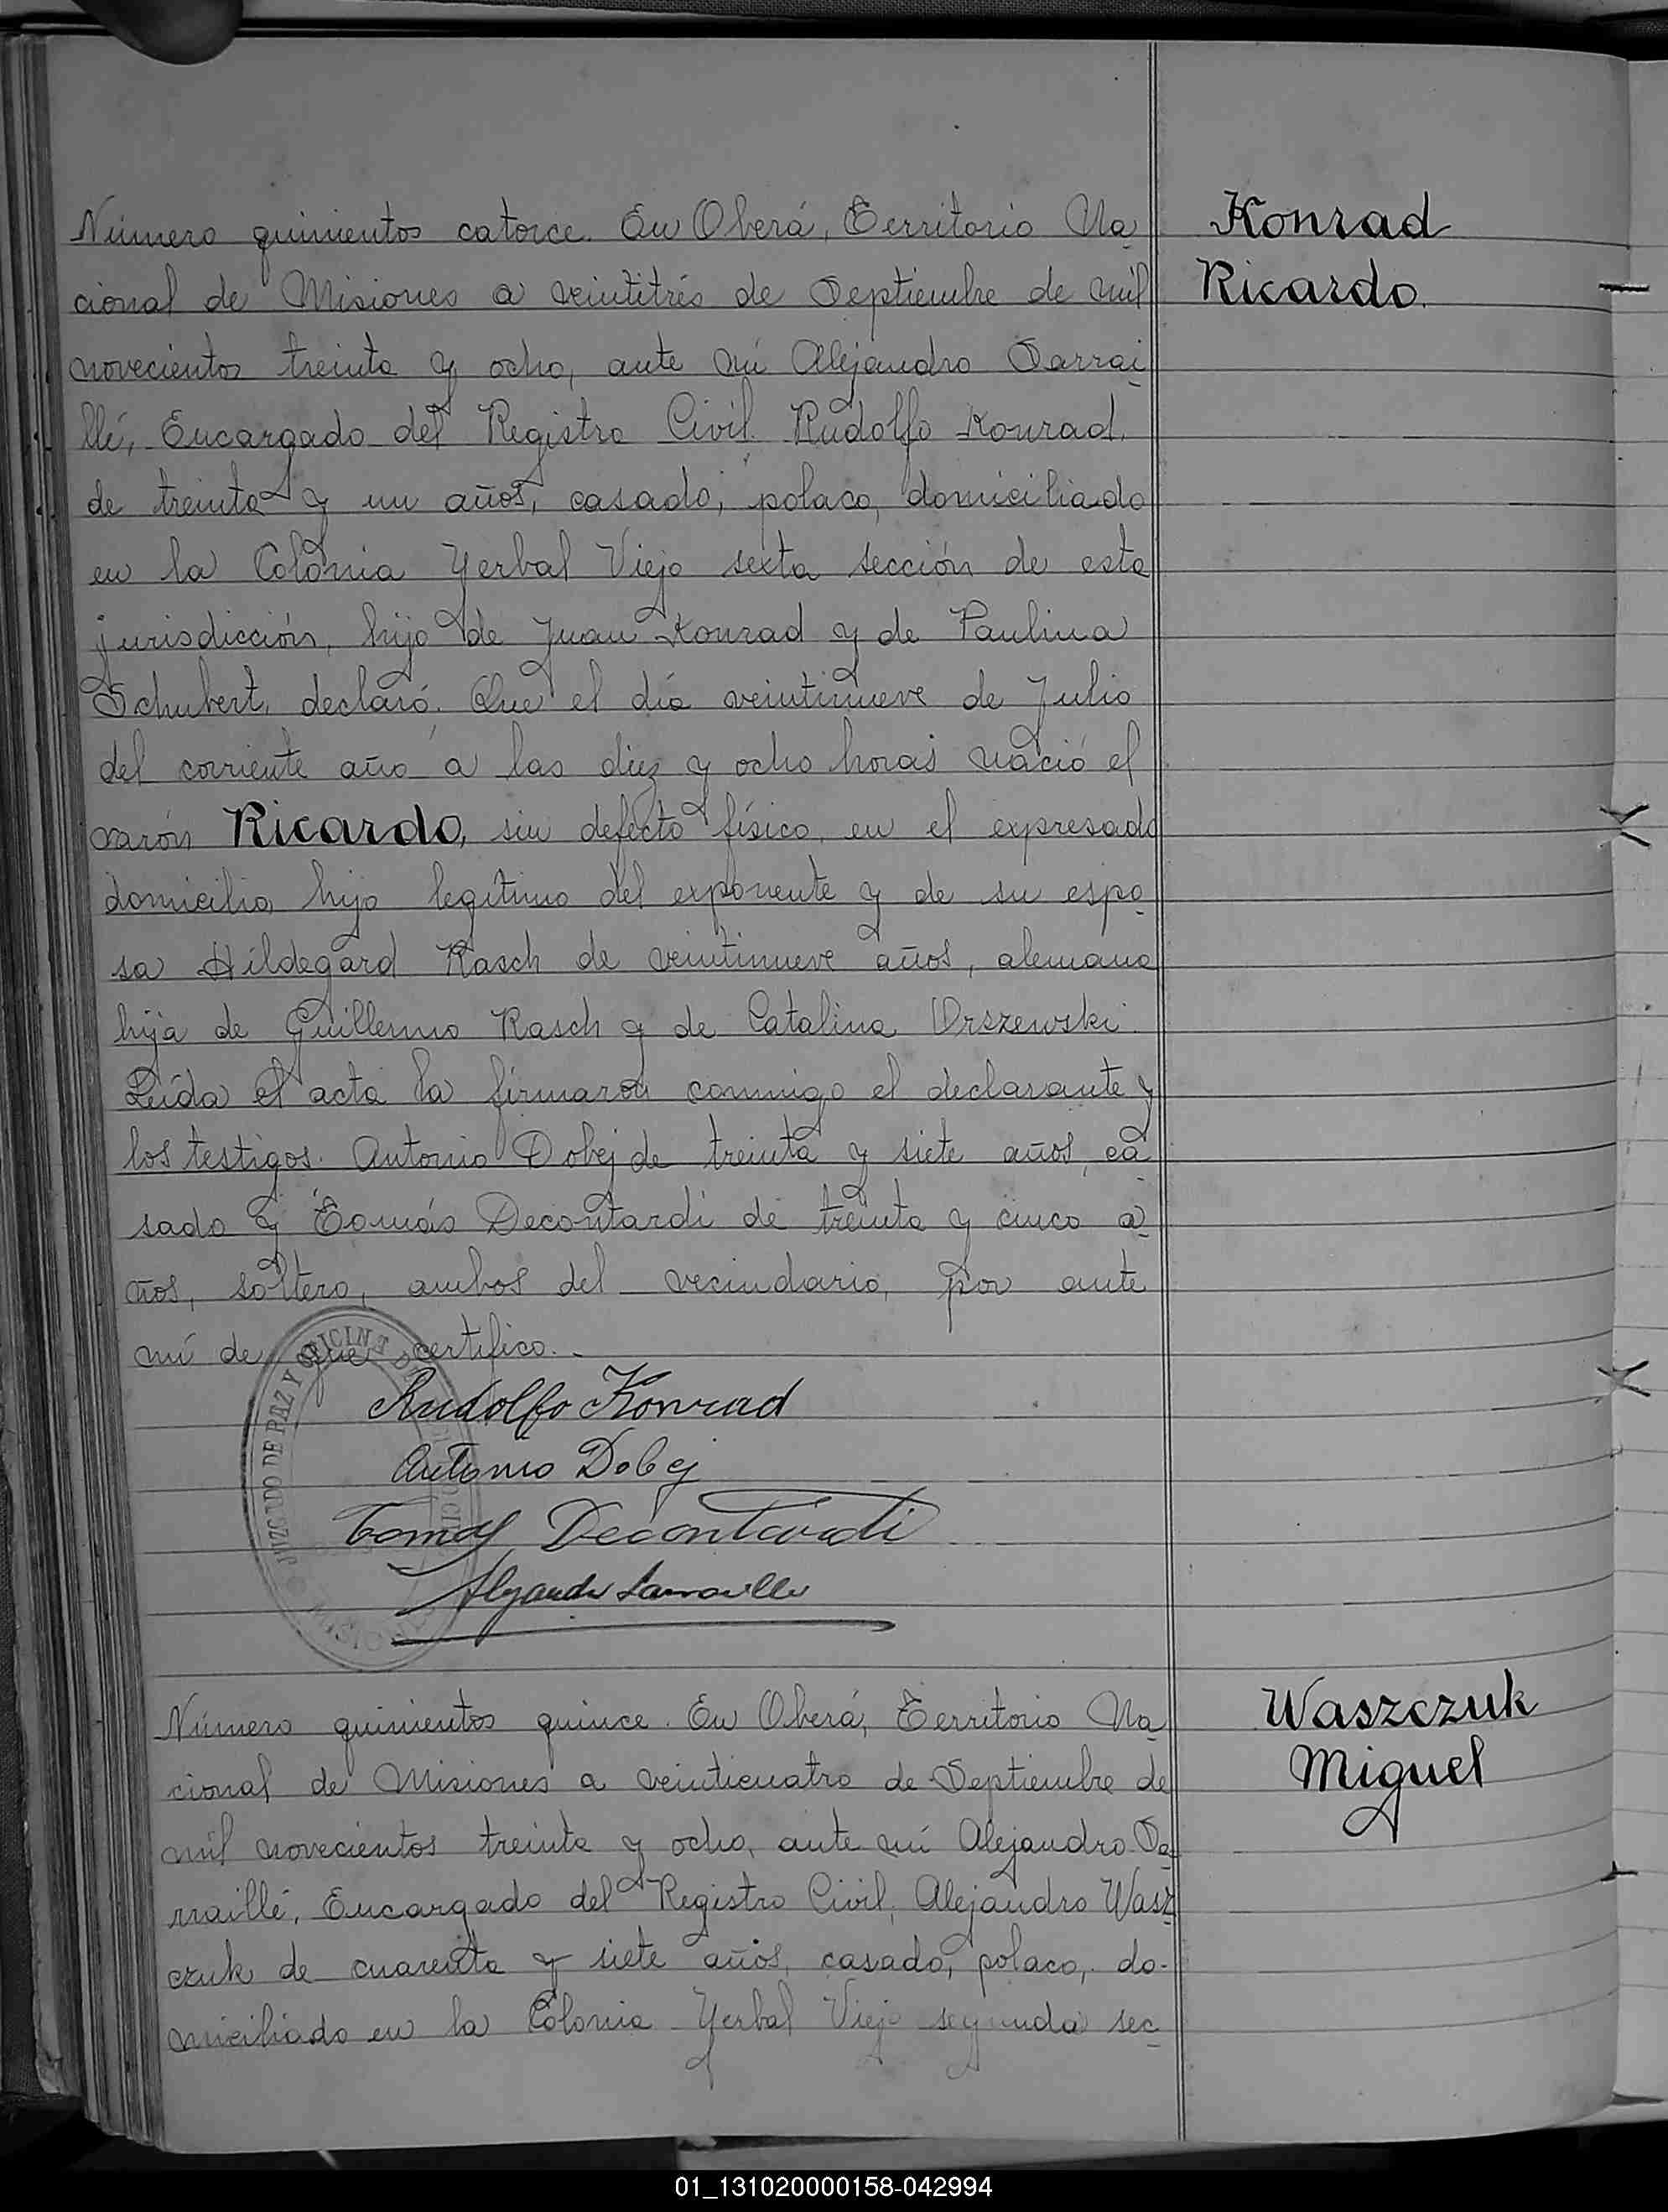 Número quinientos catorce. En Oberá, Territorio Na
cional de Misiones a veintitrés de Septiembre de mil
novecientos treinta y ocho, ante mí Alejandro Sarrai
llé, Encargado del Registro Civil. Rudolfo Konrad,
de treinta y un años, casado, polaco, domiciliado
en la Colonia Yerbal Viejo sexta sección de esta
jurisdicción, hijo de Juan Konrad y de Paulina
Schubert, declaró: Que el día veintinueve de Julio
del corriente año a las diez y ocho horas nació el
varón Ricardo, sin defecto físico, en el expresado
domicilio, hijo legítimo del exponente y de su espo
sa Hildegard Rasch de veintinueve años, alemana
hija de Guillermo Rasch y de Catalina Orszewski.
Leída el acta la firmaron conmigo el declarante y
los testigos. Antonio Dobej de treinta y siete años, ca
sado y Tomás Decontardi de treinta y cinco a
ños, soltero, ambos del vecindario, por ante
mí de que certifico.-
Rudolfo Konrad
Antonio Dobej
Tomas Decontardi
Alejandro Sarraillé
JUZGADO DE PAZ Y OFICINA
MISIONES
Konrad
Ricardo.
Número quinientos quince. En Oberá, Territorio Na
cional de Misiones a veinticuatro de Septiembre de
mil novecientos treinta y ocho, ante mí Alejandro Sa
rraillé, Encargado del Registro Civil, Alejandro Wasz
czuk de cuarenta y siete años, casado, polaco, do-
miciliado en la Colonia Yerbal Viejo segunda sec
Waszczuk
Miguel
01_131020000158-042994